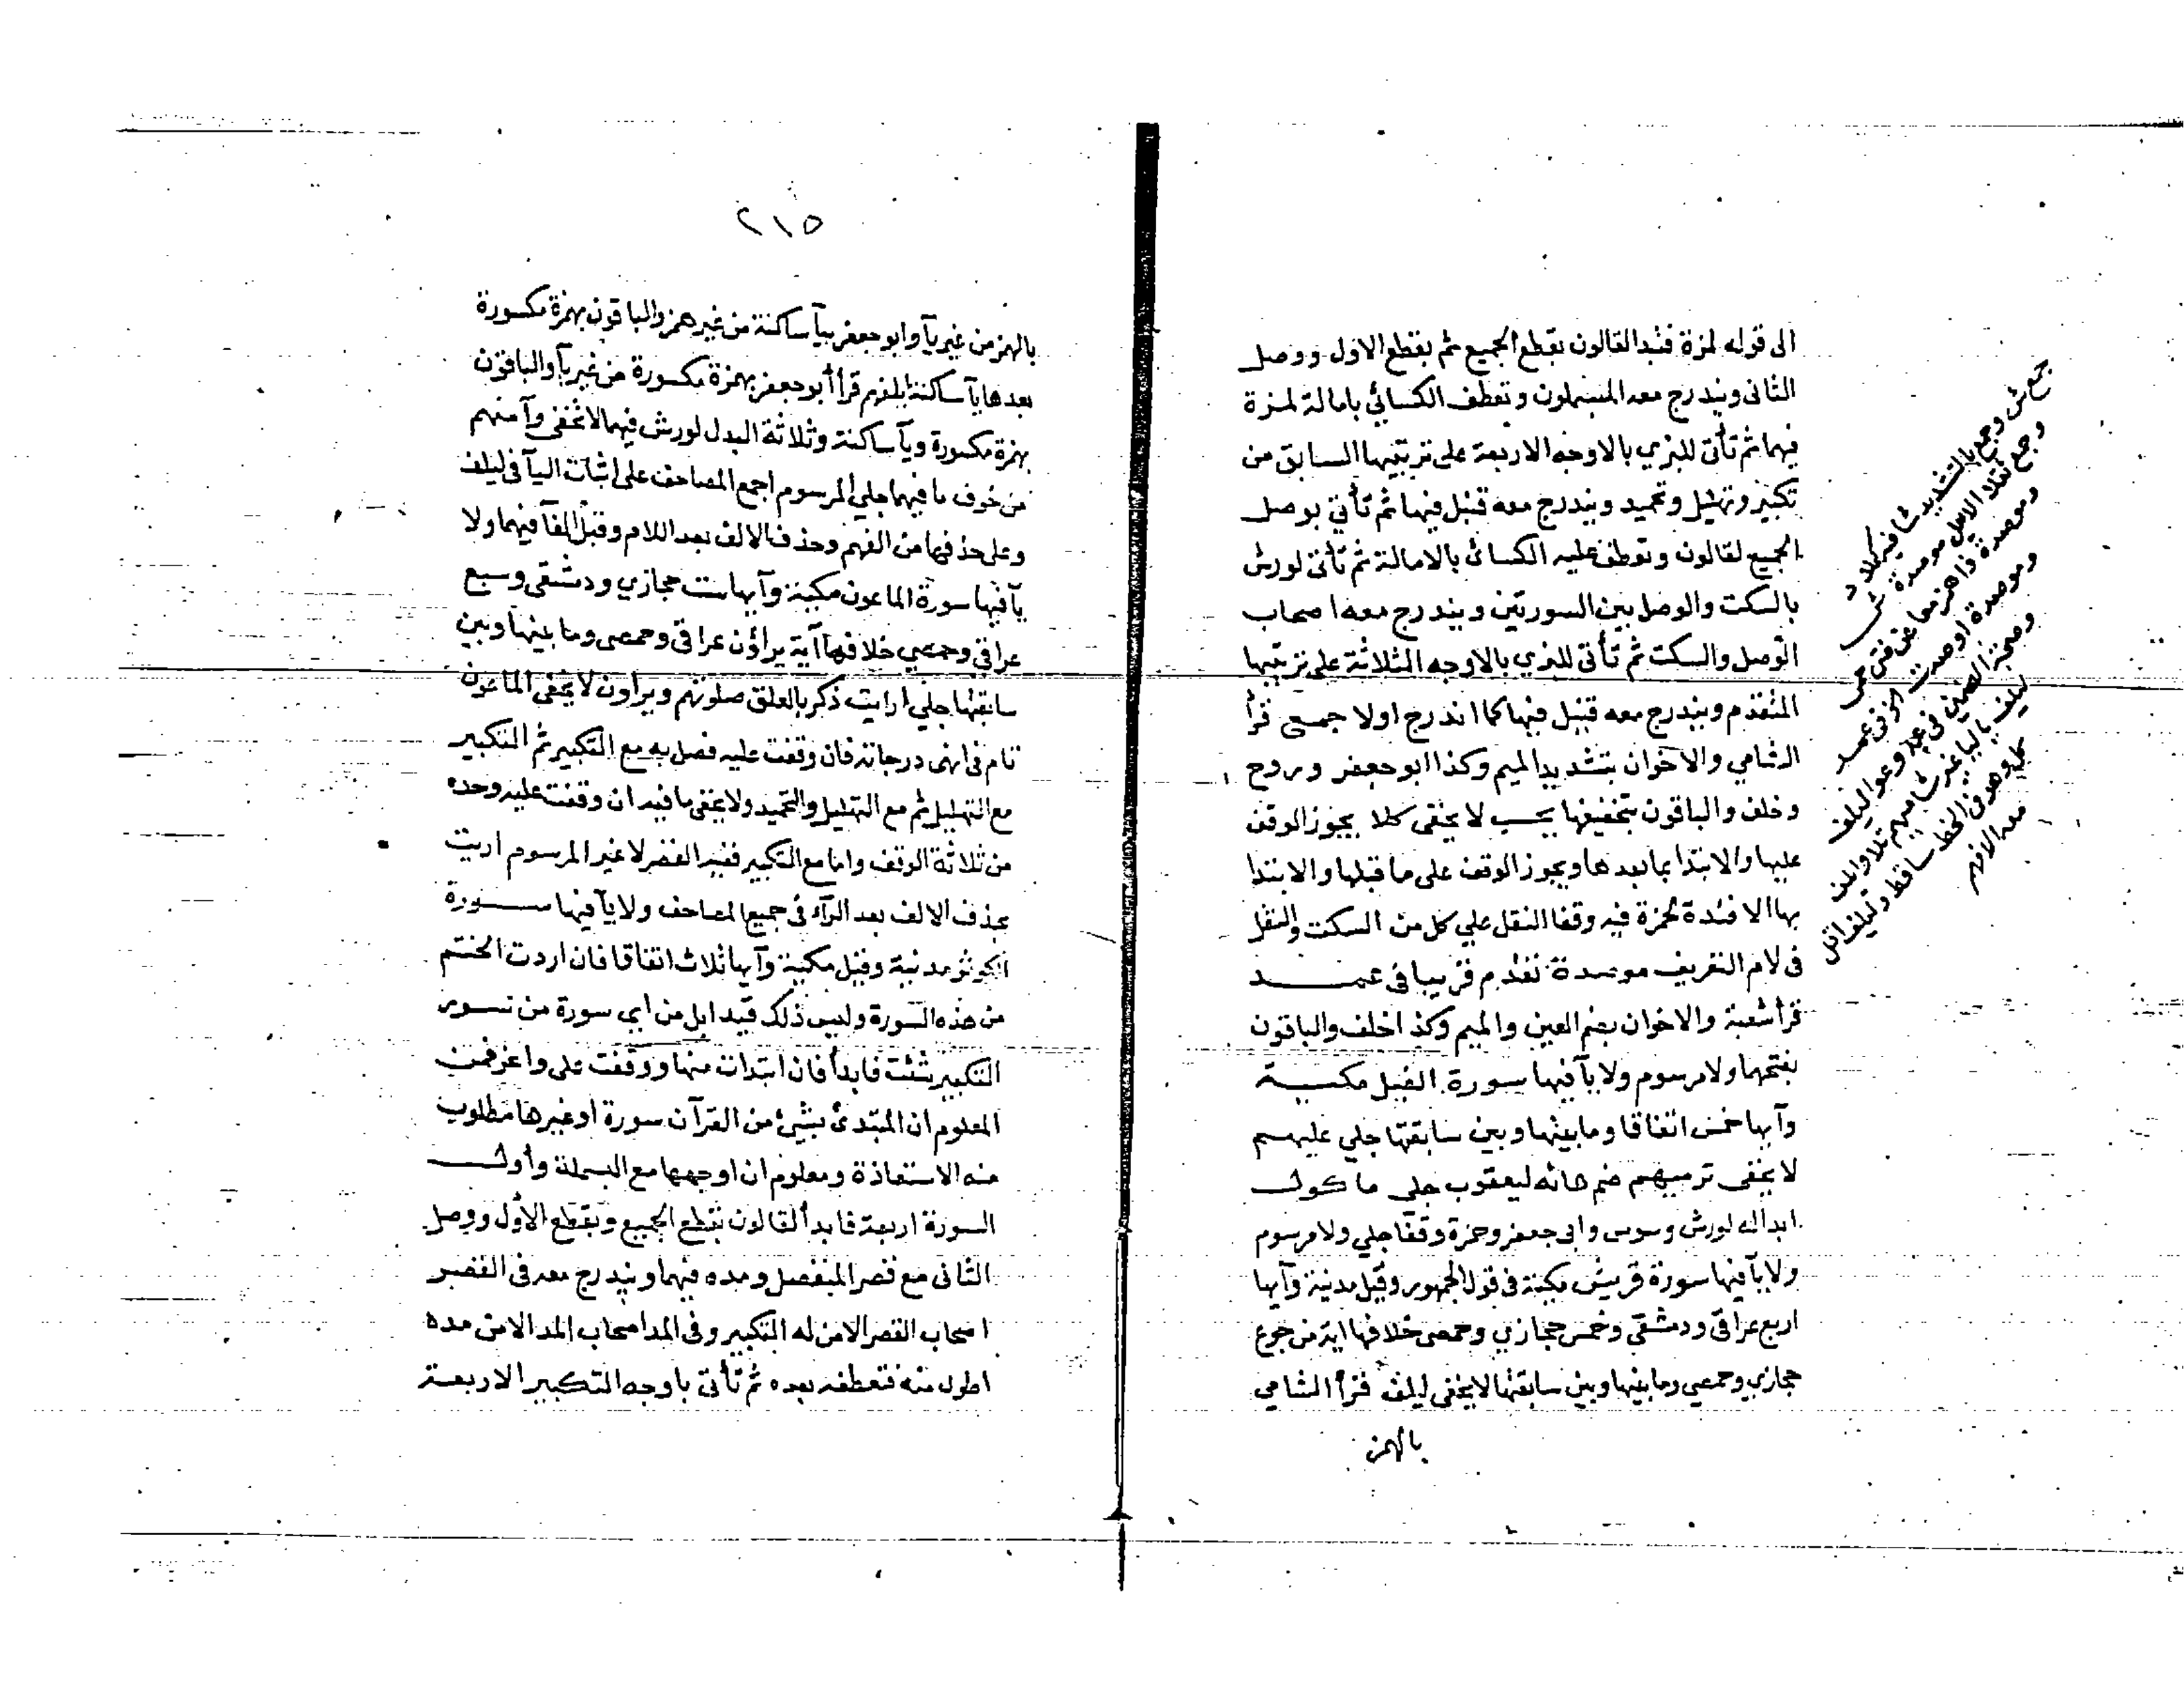 الى قوله لمزة فتبدا لقالون بقطع الجميع ثم بقطع الاول ووصل
الثانى ويندرج معه المبسملون وتعطف الكسائي بامالة لمزة
فيهما ثم تأتى للبزي بالاوجه الاربعة على ترتيبها السابق من
تكبير وتهليل وتحميد ويندرج معه قنبل فيها ثم تأتي بوصل
الجميع لقالون وتعطف عليه الكسائى بالامالة ثم تأتى لورش
بالسكت والوصل بين السورتين ويندرج معه اصحاب
الوصل والسكت ثم تأتى للبزي بالاوجه الثلاثة على ترتيبها
المتقدم ويندرج معه قنبل فيها كما اندرج اولا جمع قرأ
الشامي والاخوان بتشديد الميم وكذا ابو جعفر وروح
وخلف والباقون بتخفيفها يحسب لا يخفى كلا يجوز الوقف
عليها والابتدا بما بعدها ويجوز الوقف على ما قبلها والابتدا
بها الافئدة لحمزة فيه وقفا النقل علي كل من السكت والنقل
فى لام التعريف موصدة تقدم قريبا فى عمد
قرأ شعبة والاخوان بضم العين والميم وكذا خلف والباقون
بفتحهما ولا مرسوم ولا يآ فيها سورة الفيل مكية
وآيها خمس اتفاقا وما بينها وبين سابقتها جلي عليهم
لا يخفى ترميهم ضم هائه ليعقوب جلى ماكول
ابداله لورش وسوس وابى جعفر وحمزة وقفا جلي ولا مرسوم
ولا يآ فيها سورة قريش مكية فى قول الجمهور وقيل مدنية وآيها
اربع عراقى ودمشقى وخمس حجازي وحمصى خلافها اية من جوع
حجازي وحمصي وما بينها وبين سابقتها لا يخفى ليلف قرأ الشامي
بالهمز
جمع ش وجمع بالتشديد شافيه كلا د
ليلف باليا غير شاميهم تلا والف
كل وهو فى الخط ساقط وليلف اتل
٢١٥
بالهمز من غير يآ وابو جعفر بيآ ساكنة من غير همز والباقون بهمزة مكسورة
بعدها يآ ساكنة ايلفهم قرأ أبو جعفر بهمزة مكسورة من غير يآ والباقون
بهمزة مكسورة ويآ ساكنة وثلاثة البدل لورش فيهما لا تخفى وآمنهم
من خوف ما فيهما جلي المرسوم اجمع المصاحف على اثبات اليآ فى ليلف
وعلى حذفها من الفهم وحذف الالف بعد اللام وقبل الفآ فيهما ولا
يآ فيها سورة الماعون مكية وآيها ست حجازي ودمشقى وسبع
عراقي وحمصي خلافها آية يراؤن عراقى وحمصى وما بينها وبين
سابقتها جلي ارايت ذكر بالعلق صلوتهم ويراون لا يخفى الماعون
تام فى انهى درجاته فان وقفت عليه فصل به مع التكبير ثم التكبير
مع التهليل ثم مع التهليل والتحميد ولا يخفى ما فيه ان وقفت عليه وحده
من ثلاثة الوقف واما مع التكبير ففيه القصر لا غير المرسوم اريت
بحذف الالف بعد الرآء فى جميع المصاحف ولا يآ فيها سورة
الكوثر مدنية وقيل مكية وآيها ثلاث اتفاقا فان اردت الختم
من هذه السورة وليس ذلك قيد ابل من اي سورة من سور
التكبير شئت فابدأ فان ابتدات منها ووقفت على واعز فمن
المعلوم ان المبتدئ بشيئ من القرآن سورة اوغيرها مطلوب
منه الاستعاذة ومعلوم ان اوجهها مع البسملة وأول
السورة اربعة فابدأ لقالون بقطع الجميع وبقطع الأول ووصل
الثانى مع قصر المنفصل ومده فيهما ويندرج معه فى القصر
اصحاب القصر الا من له التكبير وفى المد اصحاب المد الا من مده
اطول منه فتعطفه بعده ثم تأتى باوجه التكبير الاربعة